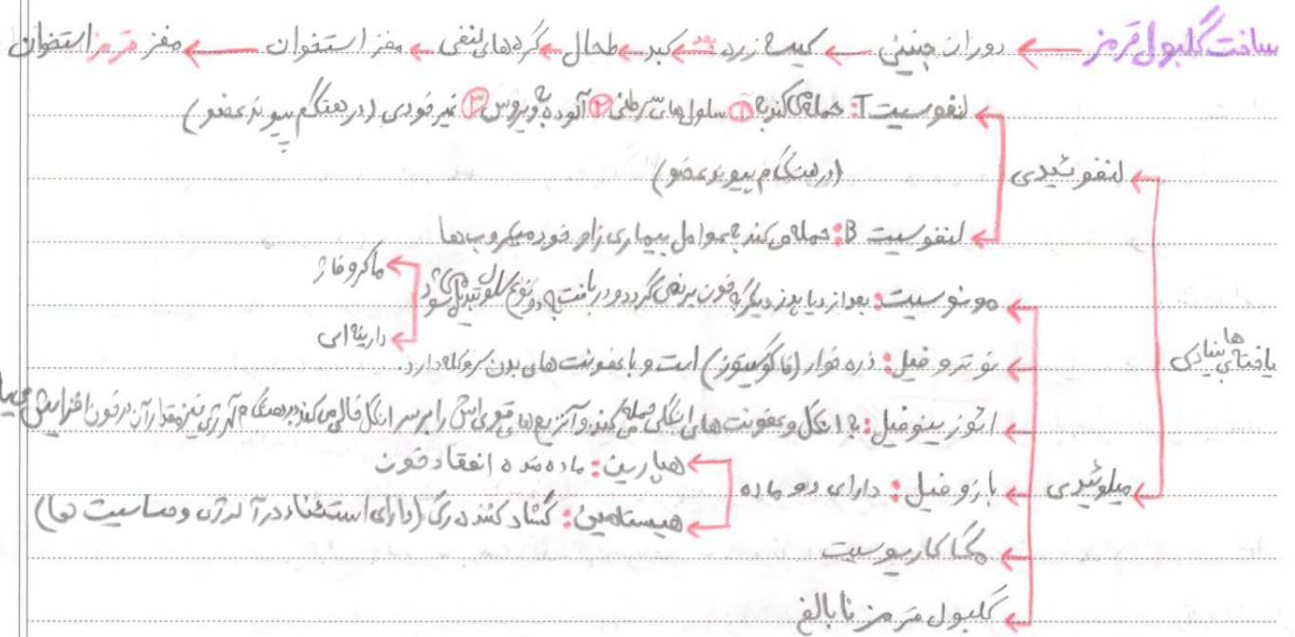 ساخت گلبول قرمز ← دوران جنینی ← کیسه زرده بعد ← کبد ← طحال ← گره های لنفی ← مغز استخوان ← مغز قرمز استخوان
یاخته های بنیادی
لنفوئیدی
لنفوسیت T: حمله می کند به ① سلول های سرطانی ② آلوده به ویروس ③ غیر خودی (در هنگام پیوند عضو)
(در هنگام پیوند عضو)
لنفوسیت B: حمله می کند به عوامل بیماری زا و خود میکروب ها
میلوئیدی
مونوسیت: بعد از دیاپدز دیگر به خون بر نمی گردد و در بافت به دو نوع سلول تبدیل می شود
ماکروفاژ
دارینه ای
نوتروفیل: ذره خوار (فاگوسیتوز) است و با عفونت های بدن سروکله دارد.
ائوزینوفیل: به انگل و عفونت های انگلی حمله می کند و آنزیم های قوی اش را بر سر انگل خالی می کند در هنگام آلرژی نیز مقدار آن در خون افزایش
بازوفیل: دارای دو ماده
هپارین: ماده ضد انعقاد خون
هیستامین: گشاد کننده رگ (دارای استثناء در آلرژی و حساسیت ها)
مگاکاریوسیت
گلبول قرمز نابالغ